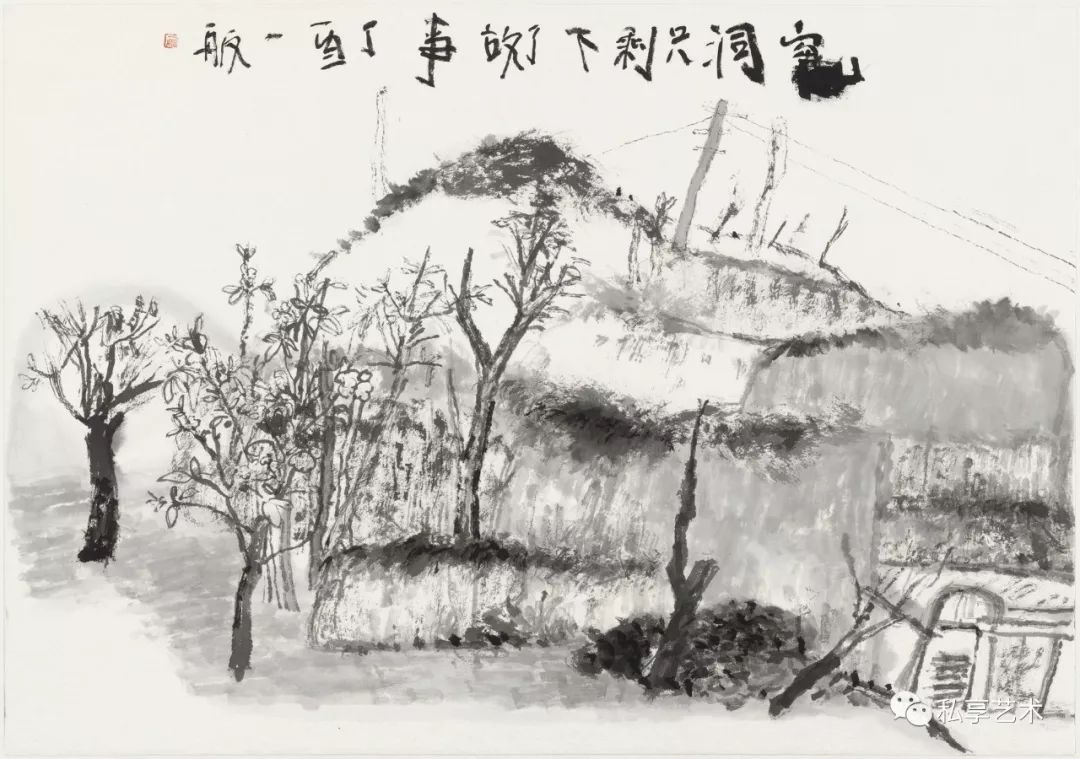 窑洞只剩下了故事丁酉一舨
私享艺术